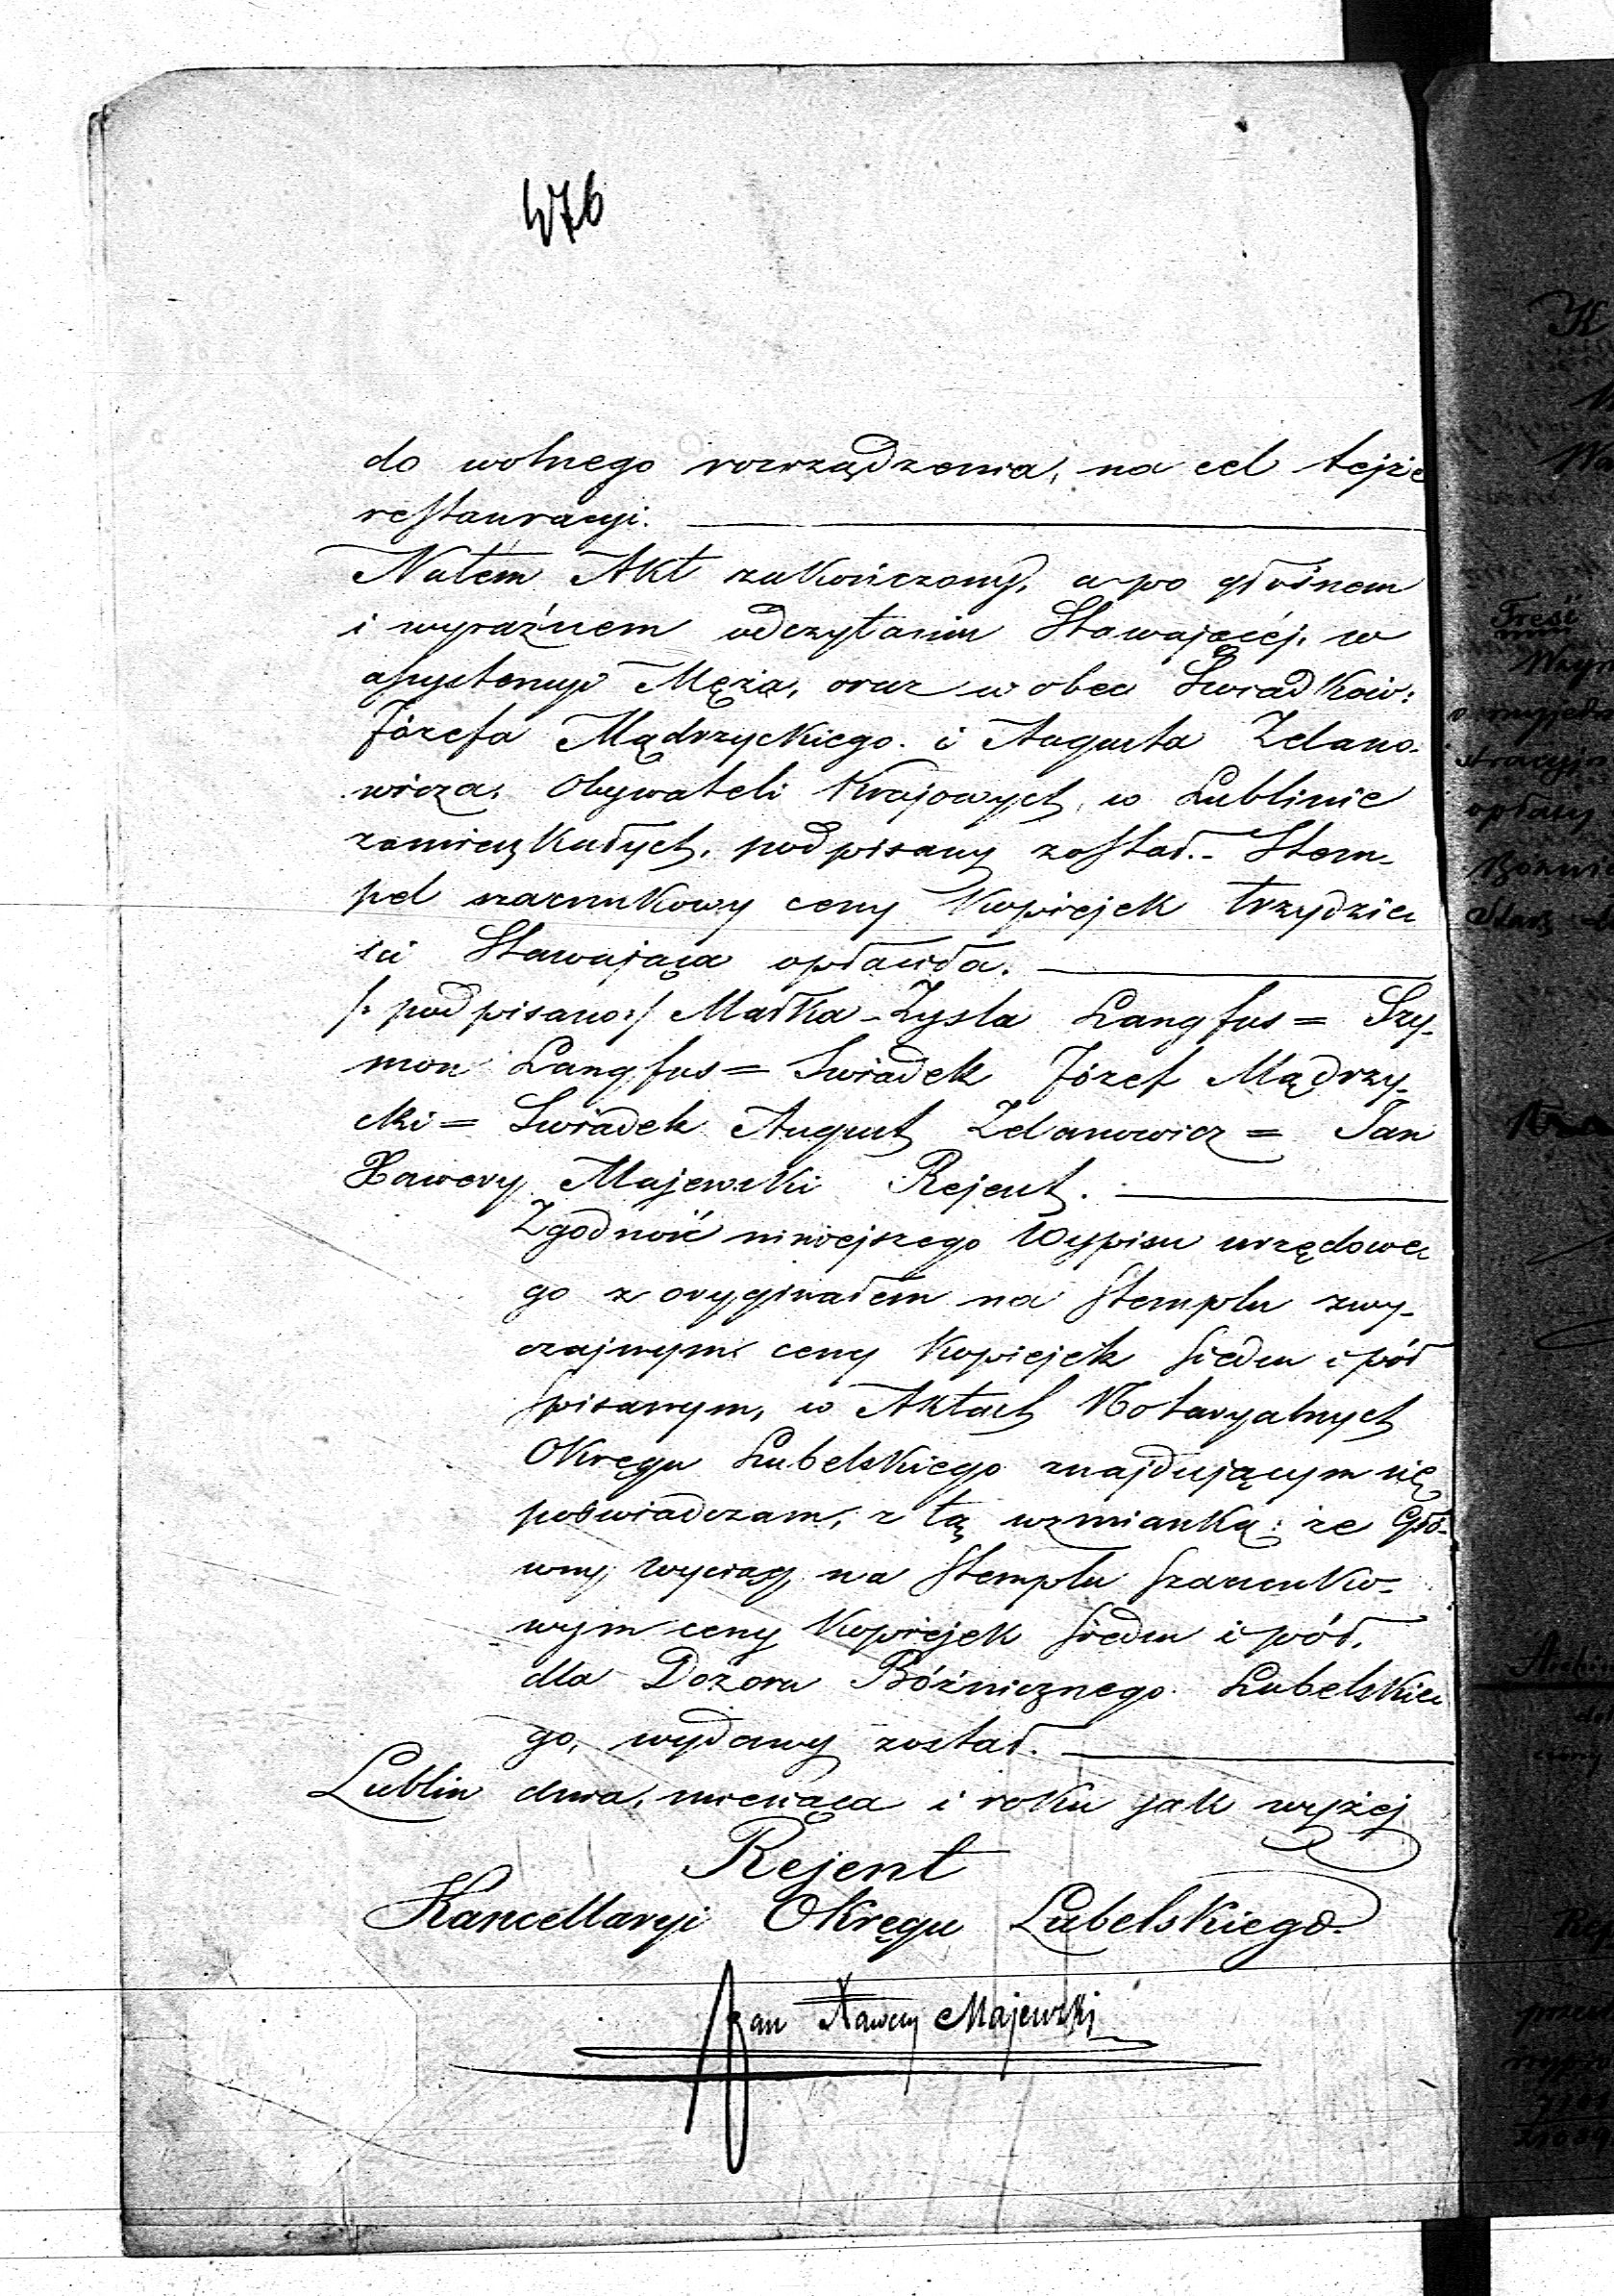 476
do wolnego rozrządzenia, na cel tejże
restauracyi.
Natem Akt zakończony, a po głośnem
i wyraźnem odczytaniu Stawającéj, w
assystencyi Męża, oraz w obec Świadków:
Józefa Mądrzyckiego i Augusta Zdano-
wicza, Obywateli Krajowych, w Lublinie
zamieszkałych, podpisany został. - Stem-
pel szacunkowy ceny kopiejek trzydzie
ści Stawająca opłaciła.
/: podpisano :/ Małka - Zysla Langfus = Szy-
mon Langfus = Swiadek Józef Mądrzy-
cki = Swiadek August Zdanowicz = Jan
Xawery Majewski Rejent.
Zgodność niniejszego Wypisu urzędowe
go z oryginałem na stemplu zwy-
czajnym ceny kopiejek siedm i pół
spisanym, w Aktach Notaryalnych
Okręgu Lubelskiego znajdującym się
poświadczam, z tą wzmianką: że Głó-
wny wyciąg na stemplu szacunko-
wym ceny kopiejek siedm i pół,
dla Dozoru Bóżnicznego Lubelskie
go, wydany został.
Lublin dnia, miesiąca i roku jak wyżej
Rejent
Kancellaryi Okręgu Lubelskiego
Jan Xawery Majewski
Treść